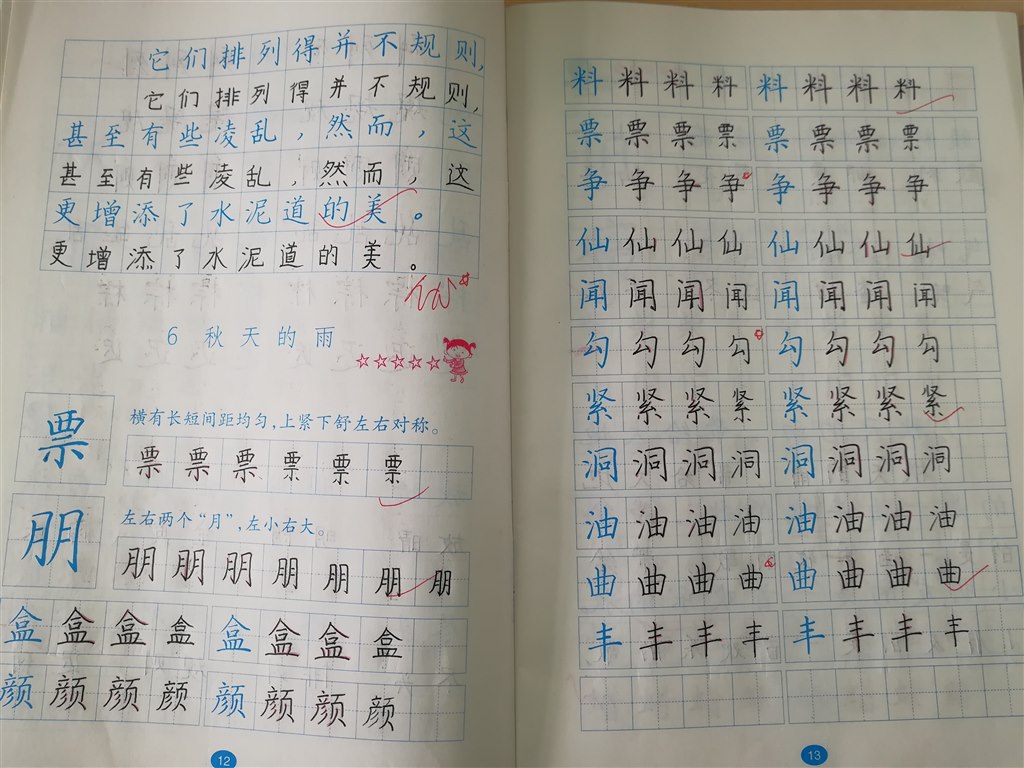 它们排列得并不规则,
它们排列得并不规则,
甚至有些凌乱,然而,这
甚至有些凌乱,然而,这
更增添了水泥道的美。
更增添了水泥道的美。
6 秋天的雨
票
横有长短间距均匀,上紧下舒左右对称。
票票票票票票
朋
左右两个“月”,左小右大。
朋朋朋朋朋朋朋
盒盒盒盒 盒盒盒盒
颜颜颜颜 颜颜颜颜
12
料料料料 料料料料
票票票票 票票票票
争争争争 争争争争
仙仙仙仙 仙仙仙仙
闻闻闻闻 闻闻闻闻
勾勾勾勾 勾勾勾勾
紧紧紧紧 紧紧紧紧
洞洞洞洞 洞洞洞洞
油油油油 油油油油
曲曲曲曲 曲曲曲曲
丰丰丰丰 丰丰丰丰
13